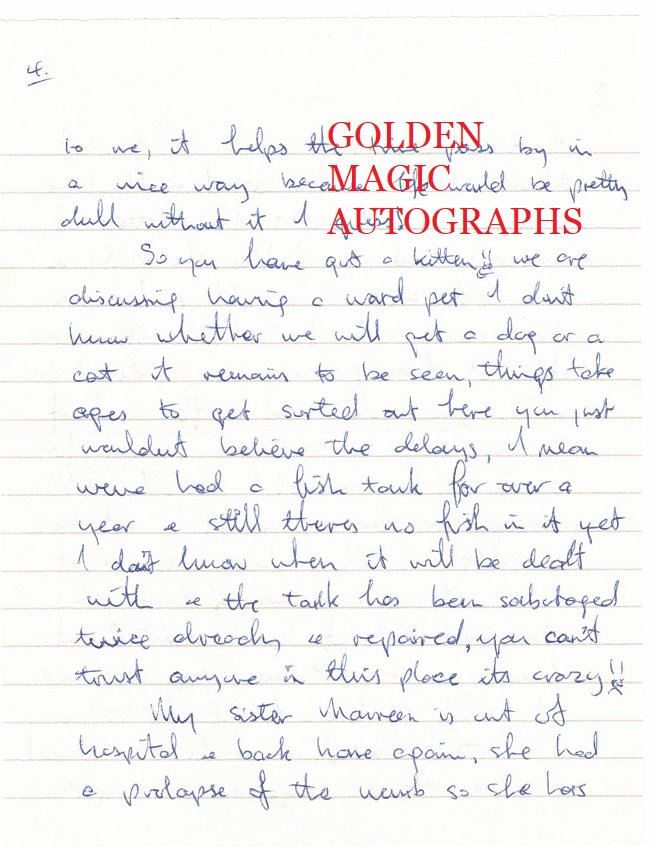 4.
to me, it helps the time pass by in
a nice way because life would be pretty
dull without it I guess!
GOLDEN
MAGIC
AUTOGRAPHS
So you have got a kitten!! we are
discussing having a ward pet I don't
know whether we will get a dog or a
cat it remains to be seen, things take
ages to get sorted out here you just
wouldnt believe the delays, I mean
weve had a fish tank for over a
year & still theres no fish in it yet
I don't know when it will be dealt
with & the tank has been sabotaged
twice already & repaired, you can't
trust anyone in this place its crazy!!
My sister Maureen is out of
hospital & back home again, she had
a prolapse of the womb so she has